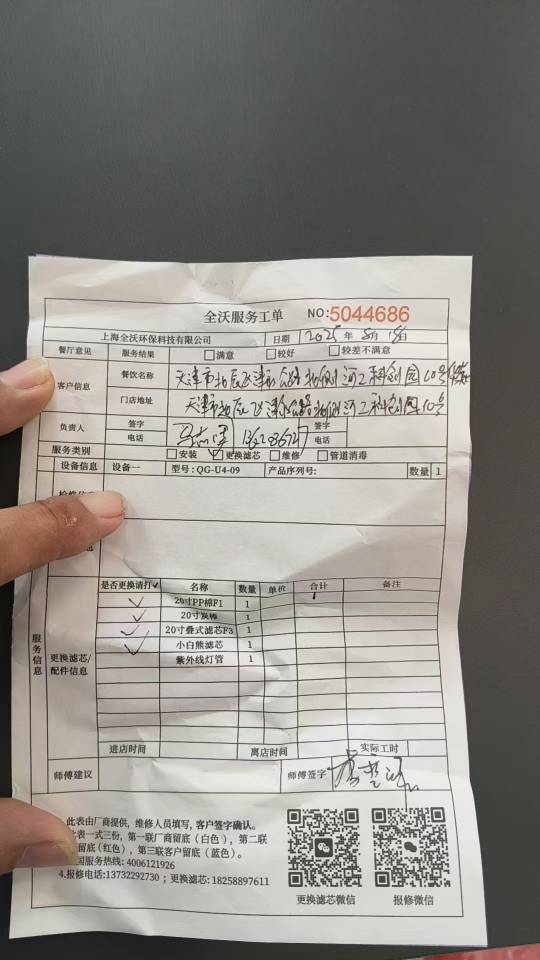 全沃服务工单 NO:5044686
上海全沃环保科技有限公司 日期 2025年8月15日
餐厅意见 服务结果 满意 较好 较差不满意
客户信息 餐饮名称 天津市北辰区津 河工科创园10号
门店地址 天津市北辰区津 河工科创园10号
负责人 签字 签字
电话 电话
服务类别 安装 更换滤芯 维修 管道消毒
设备信息 设备一 型号:QG-U4-09 产品序列号: 数量 1
服务信息
更换滤芯/配件信息
是否更换请打✓ 名称 数量 单价 合计 备注
✓ 20寸PP棉F1 1
✓ 20寸炭棒 1
✓ 20寸叠式滤芯F3 1
✓ 小白熊滤芯 1
紫外线灯管 1
进店时间 离店时间 实际工时
师傅建议 师傅签字
此表由厂商提供，维修人员填写，客户签字确认。
表一式三份，第一联厂商留底（白色），第二联
留底（红色），第三联客户留底（蓝色）。
国服务热线: 4006121926
4.报修电话:13732292730；更换滤芯: 18258897611
更换滤芯微信 报修微信